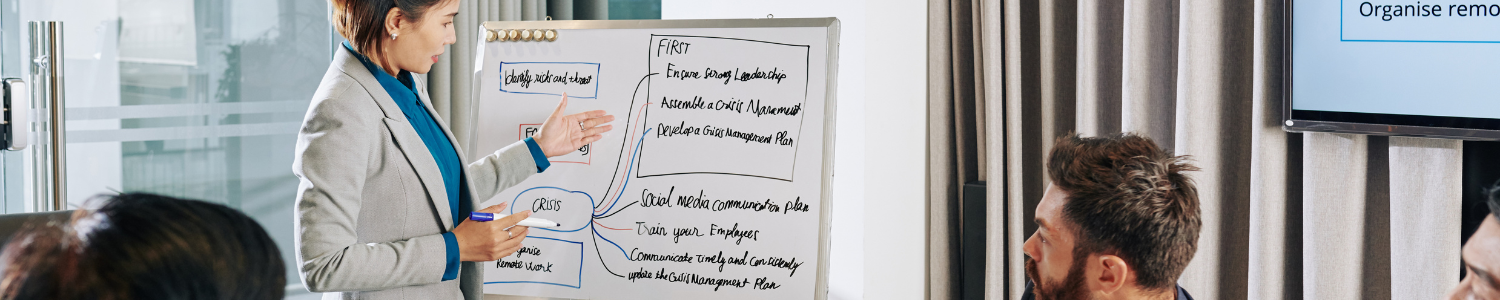 Identify risks and threat
FIRST
Ensure Strong Leadership
Assemble a Crisis Manament
Develop a Crisis Management Plan
CRISIS
Social media communication plan
Train your Employees
Communicate Timely and consistently
update the Crisis Management Plan
Remote Work
Organise remo